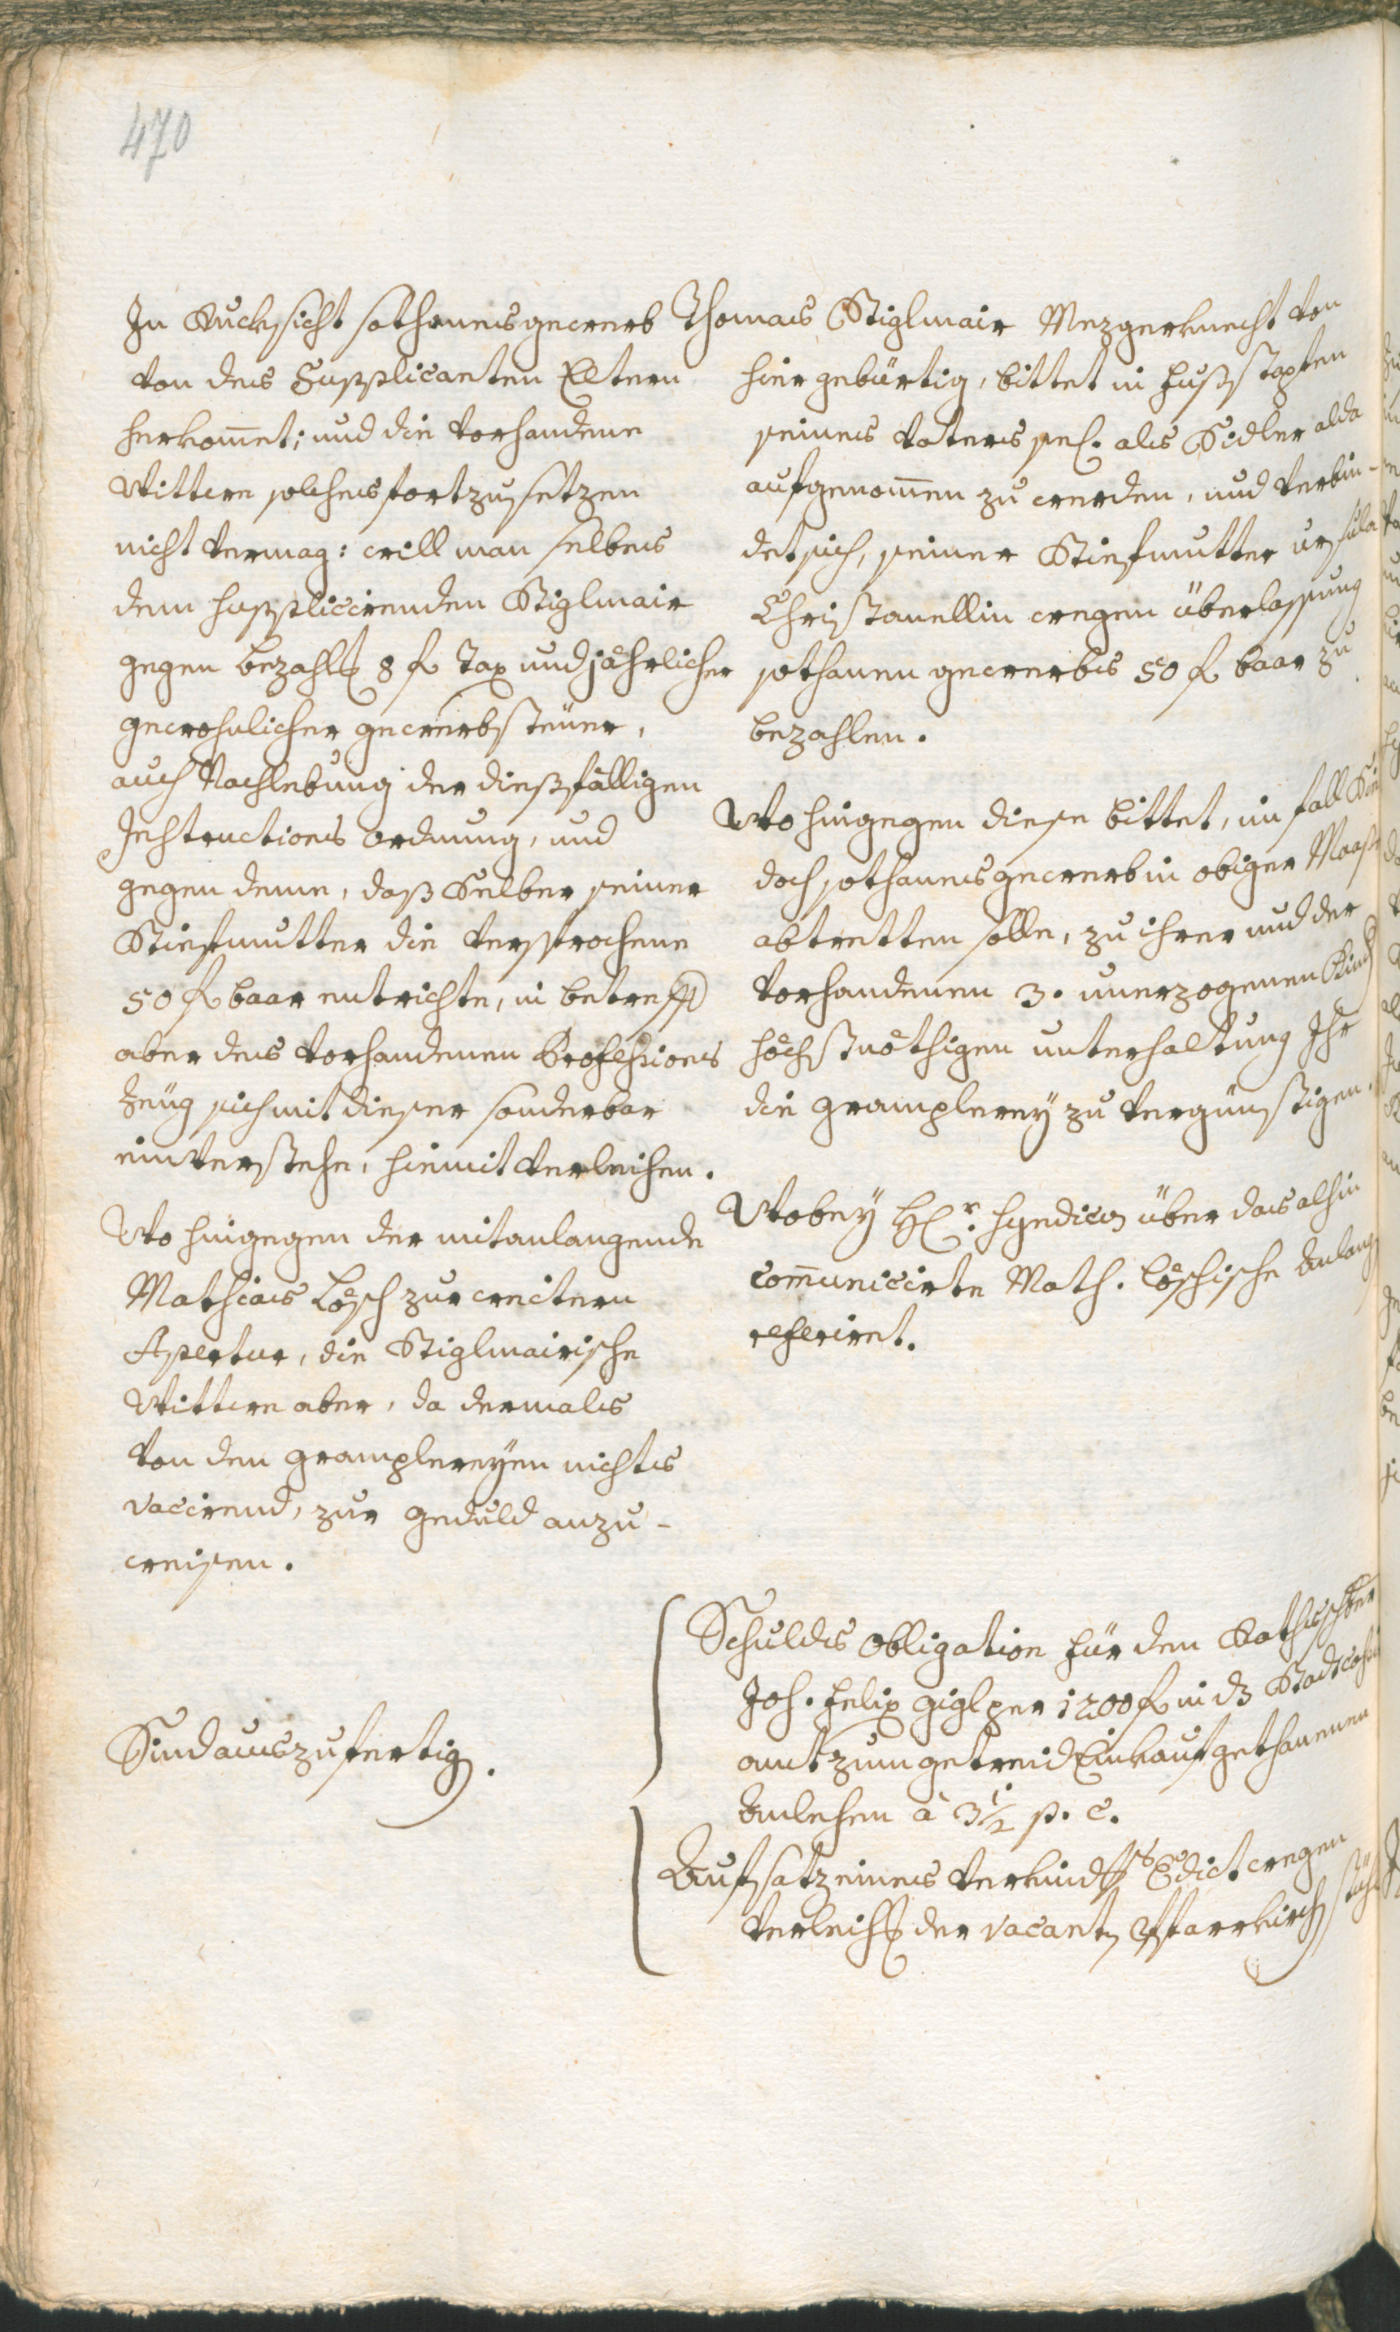 470
In Rucksicht sothannes gewerb
von des Supplicanten Eltern
herkom̅et; und die vorhandene
Wittwe solches fortzusetzen
nicht vermag: will man selbes
dem supplicirenden Stiglmair
gegen bezahlg 8 f Tax und jährlicher
gewohnlicher gewerbsteüer,
auch Nachlebung der dießfälligen
Instructions ordnung, und
gegen deme, daß Selber seiner
Stiefmutter die versprochene
50 f baar entrichte, in betreff
aber des vorhandenen Professions
zeüg sich mit dieser sonderbar
einverstehe, hiemit verleihen.
Wo hingegen der mitanlangende
Mathias Lösch zur weitern
Apertur, die Stiglmairische
Wittwe aber, da dermals
von den gramplereyen nichts
vacirend, zur geduld anzu-
weisen.
Sind auszufertig.
Thomas Stiglmair Mezgerknecht von
hier gebürtig, bittet in fußstapfen
seines Vaters sel. als Sidler alda
aufgenom̅en zu werden, und verbin-
det sich, seiner Stiefmutter ursula
Christanellin wegen überlassung
sothanen gewerbs 50 f baar zu
bezahlen.
Wo hingegen diese bittet, im fall Sie
doch sothannes gewerb in obiger Maaß
abtretten solle, zu ihrer und der
vorhandenen 3. unerzogenen Kind
höchstnöthigen unterhaltung Ihr
die gramplerey zu vergünstigen.
Wobey H: Syndicus über das alhin
com̅unicirte Math. Löschische Anlang
referiret.
Schulds obligation für den Raths
Joh. felix gigl per 1200 f in dz Stadt
amt zum getreid Einkauf gethanenen
Anlehen à 3 1/2 p. c.
Aufsatz eines Verkind Edict wegen
Verleihg der vacantn Pfarrkirch